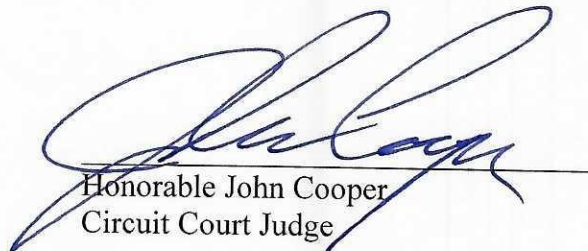 John Cooper
Honorable John Cooper
Circuit Court Judge